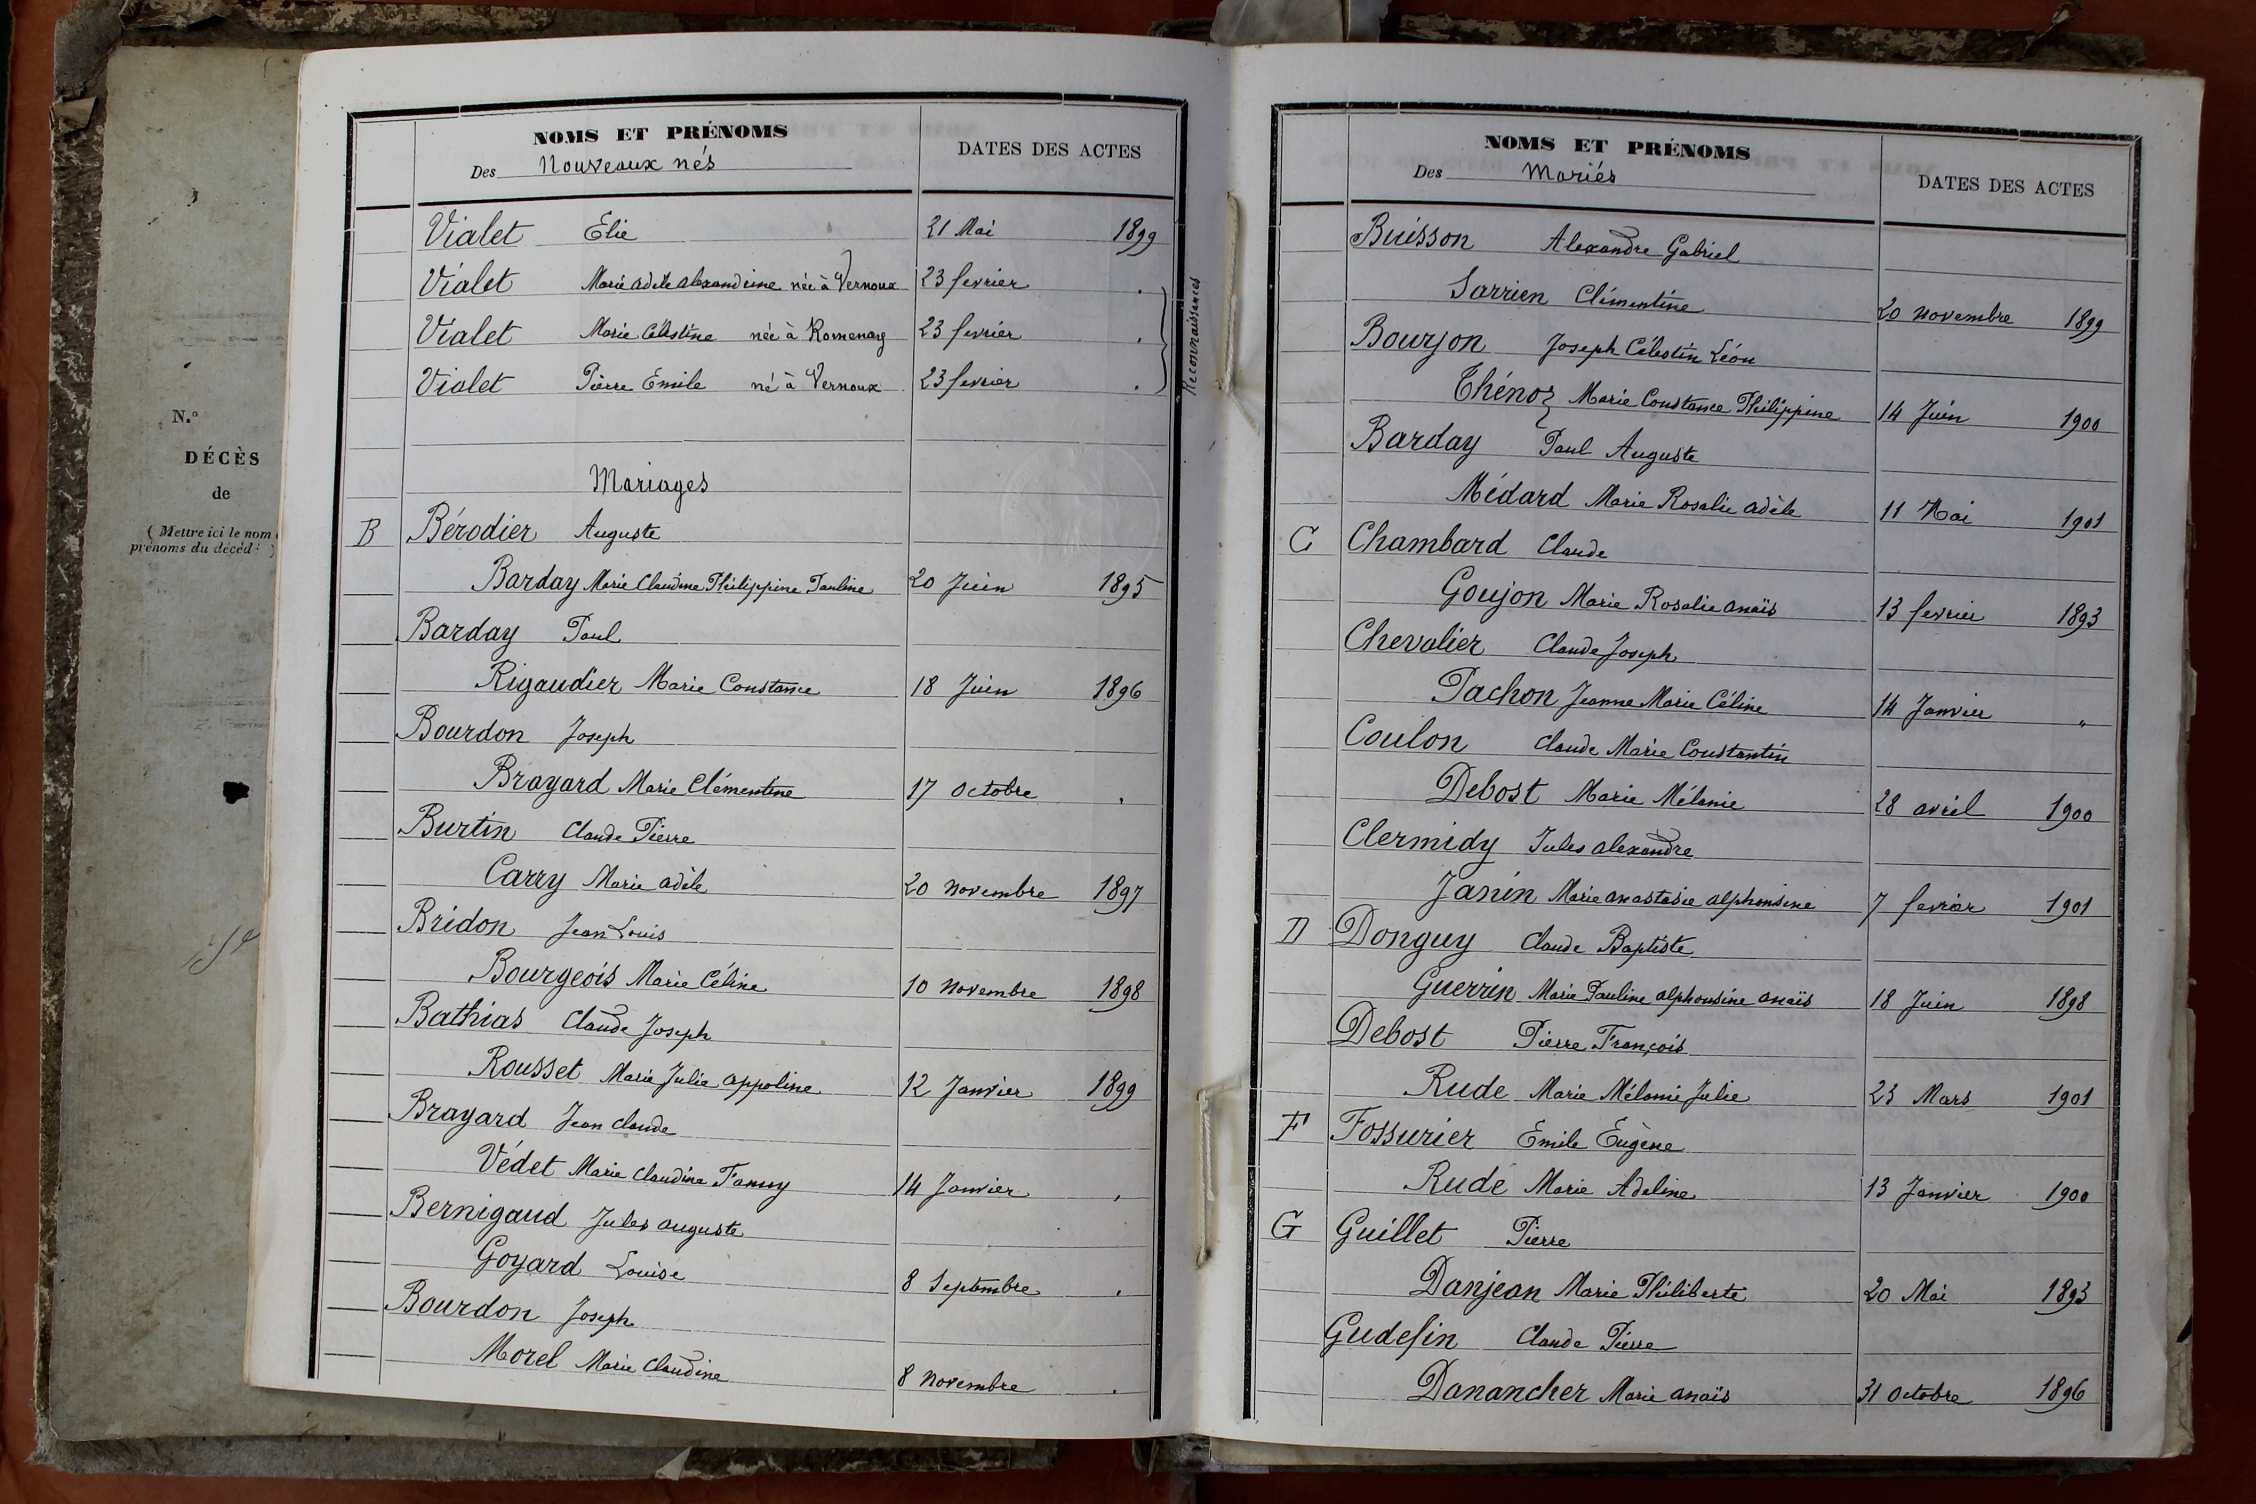 N.º
DÉCÈS
de
( Mettre ici le nom
prénoms du décéd
NOMS ET PRÉNOMS
Des Nouveaux nés
DATES DES ACTES
Vialet Elie 21 Mai 1899
Vialet Marie Adèle Alexandrine née à Vernoux 23 fevrier .
Vialet Marie Célestine née à Romenay 23 fevrier .
Vialet Pierre Emile né à Vernoux 23 fevrier .
Reconnaissances
Mariages
B Bérodier Auguste
Barday Marie Claudine Philippine Pauline 20 Juin 1895
Barday Paul
Rigaudier Marie Constance 18 Juin 1896
Bourdon Joseph
Brayard Marie Clémentine 17 Octobre .
Burtin Claude Pierre
Carry Marie adèle 20 Novembre 1897
Bridon Jean Louis
Bourgeois Marie Céline 10 Novembre 1898
Bathias Claude Joseph
Rousset Marie Julie appoline 12 Janvier 1899
Brayard Jean Claude
Védet Marie Claudine Fanny 14 Janvier .
Bernigaud Jules auguste
Goyard Louise 8 Septembre .
Bourdon Joseph
Morel Marie Claudine 8 Novembre .
NOMS ET PRÉNOMS
Des Mariés
DATES DES ACTES
Buisson Alexandre Gabriel
Sarrien Clémentine 20 Novembre 1899
Bourjon Joseph Célestin Léon
Thénoz Marie Constance Philippine 14 Juin 1900
Barday Paul Auguste
Médard Marie Rosalie adèle 11 Mai 1901
C Chambard Claude
Goujon Marie Rosalie anaïs 13 fevrier 1893
Chevalier Claude Joseph
Pachon Jeanne Marie Céline 14 Janvier "
Coulon Claude Marie Constantin
Debost Marie Mélanie 28 avril 1900
Clermidy Jules alexandre
Janin Marie anastasie alphonsine 7 fevrier 1901
D Donguy Claude Baptiste
Guerrin Marie Pauline alphonsine anaïs 18 Juin 1898
Debost Pierre François
Rude Marie Mélanie Julie 23 Mars 1901
F Fossurier Emile Eugène
Rude Marie Adeline 13 Janvier 1900
G Guillet Pierre
Danjean Marie Philiberte 20 Mai 1893
Gudefin Claude Pierre
Danancher Marie anaïs 31 Octobre 1896